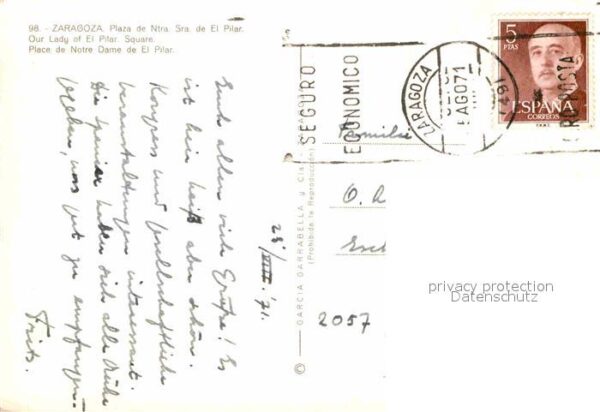 98. - ZARAGOZA. Plaza de Ntra. Sra. de El Pilar.
Our Lady of El Pilar. Square.
Place de Notre Dame de El Pilar.
Euch allen viele Grüße! Es
ist hier heiß aber schön.
Kongress und gesellschaftliche
Veranstaltungen interessant.
Die Spanier haben sich alle Mühe
gegeben, uns gut zu empfangen.
Fritz.
28/VIII. 71.
GARCIA GARRABELLA y Cía. - ZARAGOZA
(Prohibida la Reproducción)
©
SEGURO
ECONOMICO
ZARAGOZA
AGO71
5
PTAS
ESPAÑA
CORREOS
Familie
O. A
2057
privacy protection
Datenschutz